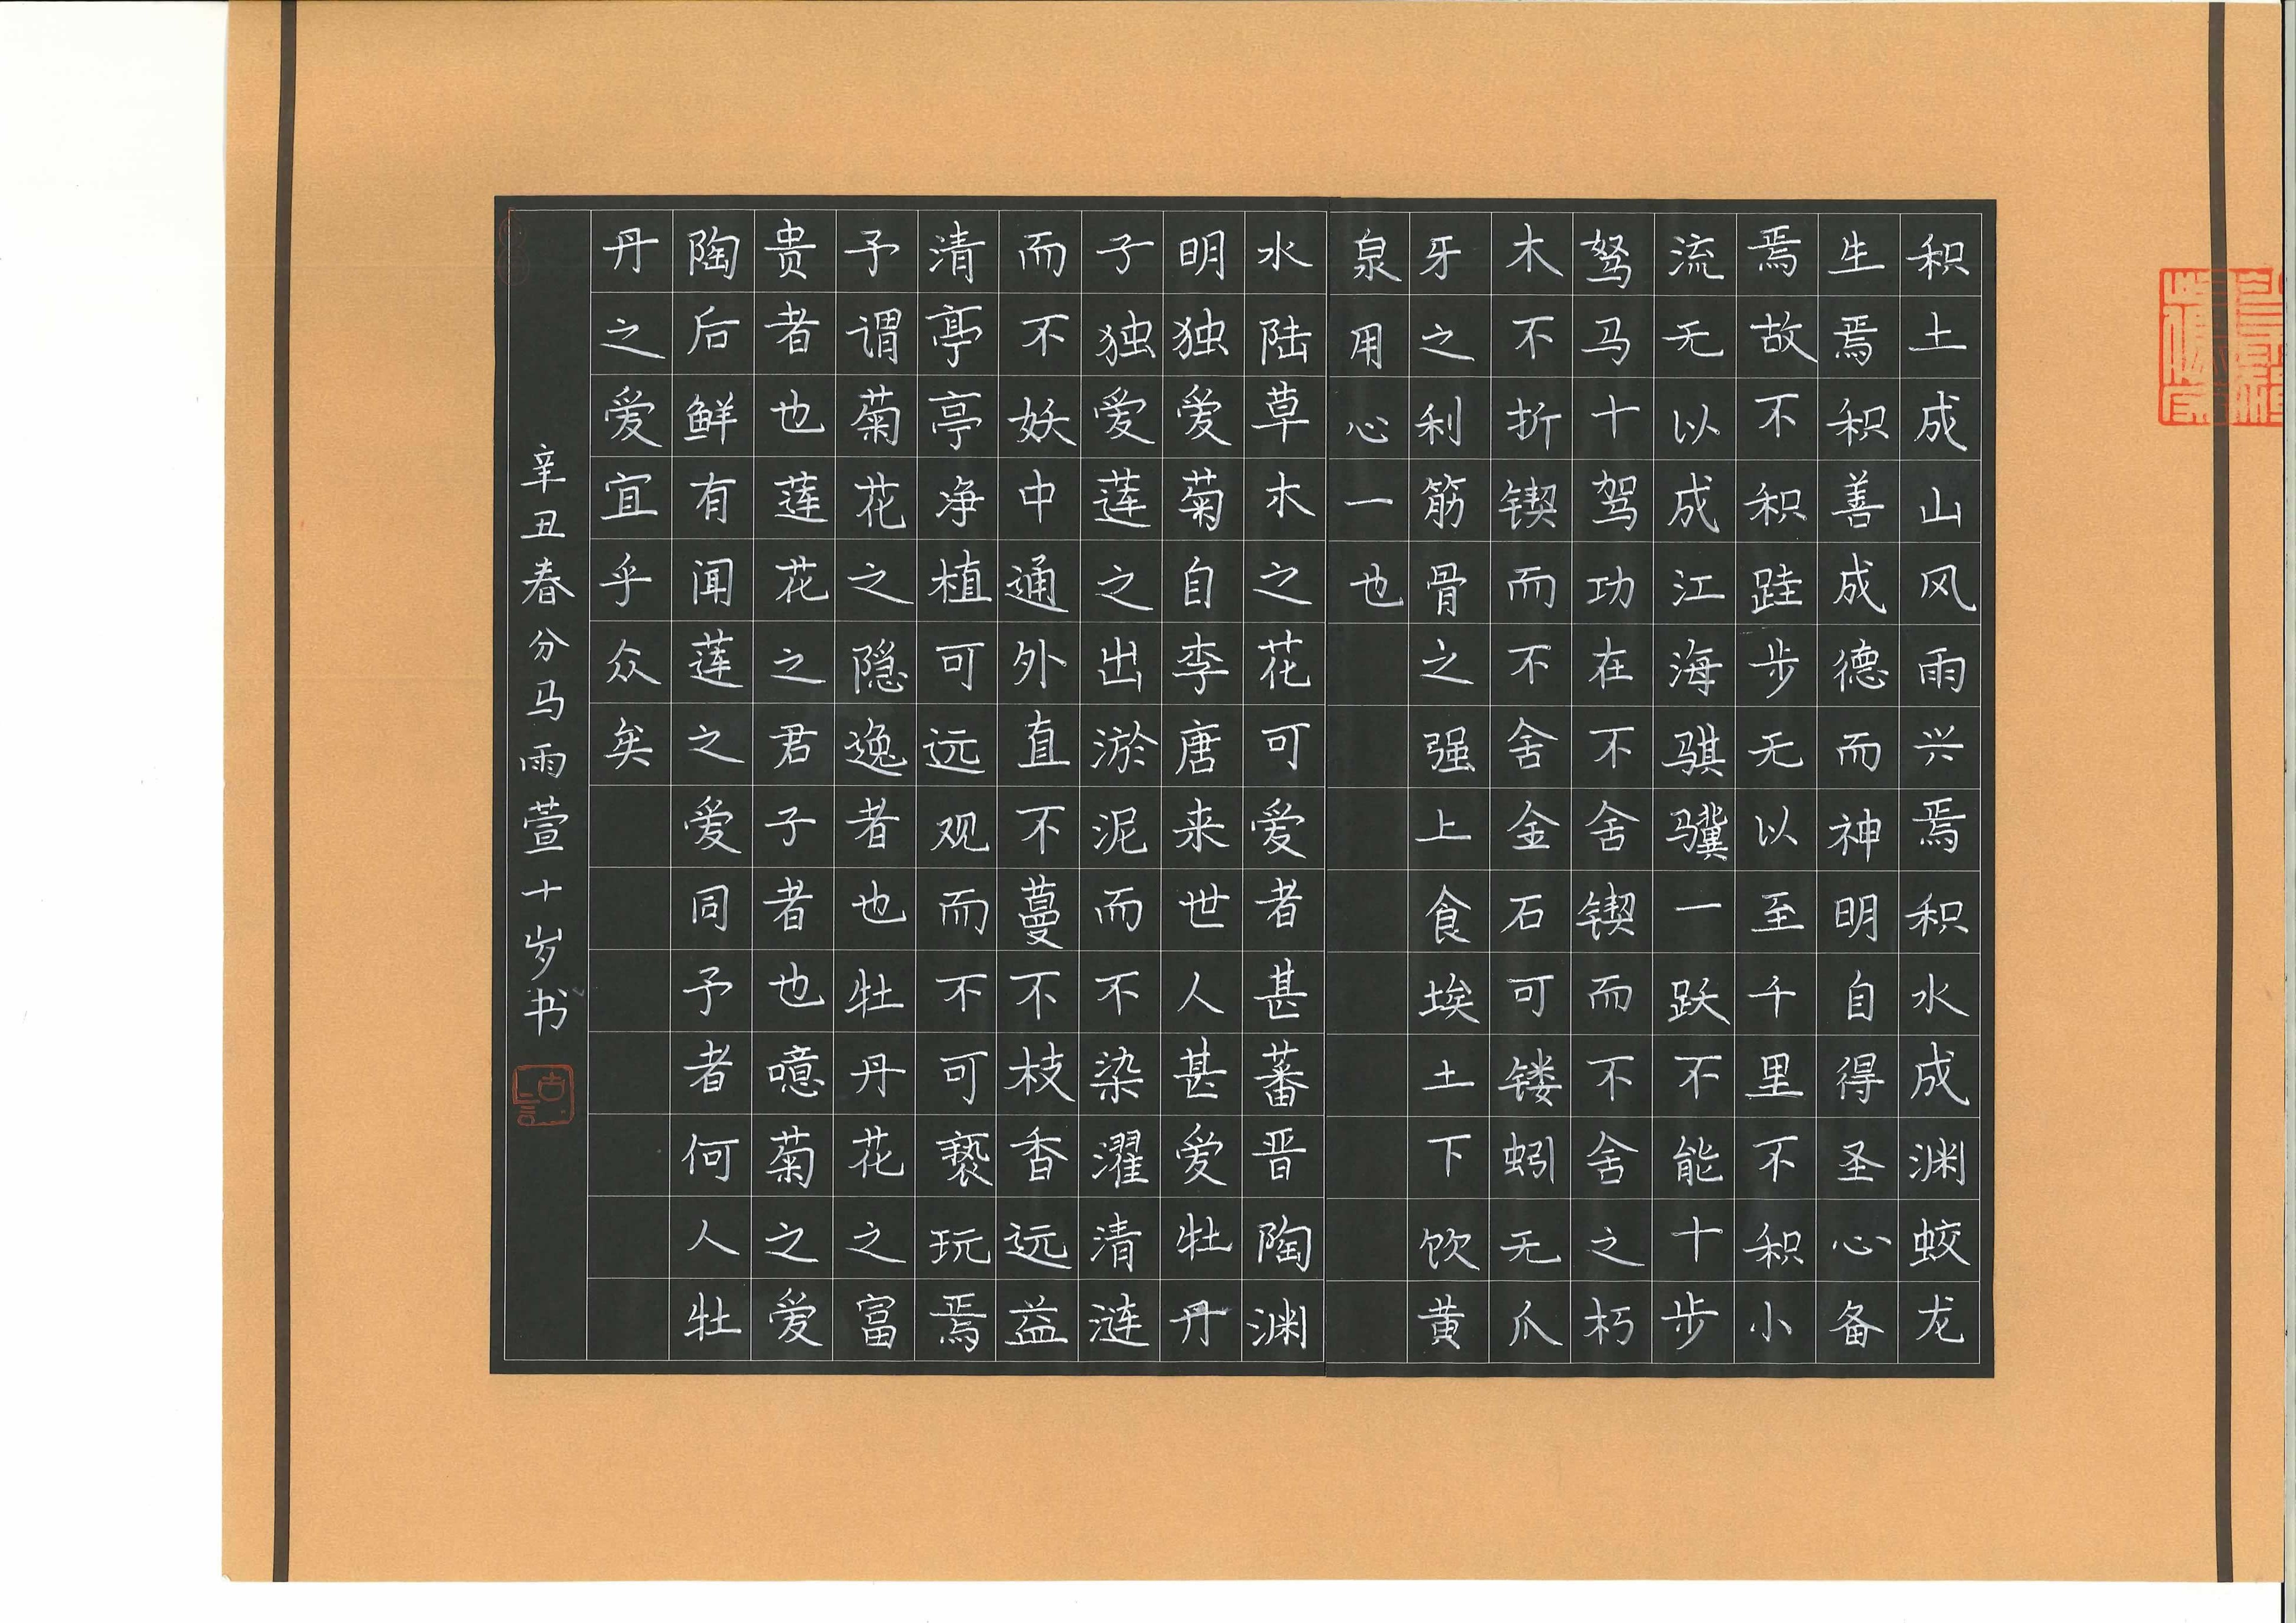 积土成山风雨兴焉积水成渊蛟龙
生焉积善成德而神明自得圣心备
焉故不积跬步无以至千里不积小
流无以成江海骐骥一跃不能十步
驽马十驾功在不舍锲而不舍之朽
木不折锲而不舍金石可镂蚓无爪
牙之利筋骨之强上食埃土下饮黄
泉用心一也
水陆草木之花可爱者甚蕃晋陶渊
明独爱菊自李唐来世人甚爱牡丹
予独爱莲之出淤泥而不染濯清涟
而不妖中通外直不蔓不枝香远益
清亭亭净植可远观而不可亵玩焉
予谓菊花之隐逸者也牡丹花之富
贵者也莲花之君子者也噫菊之爱
陶后鲜有闻莲之爱同予者何人牡
丹之爱宜乎众矣
辛丑春分马雨萱十岁书